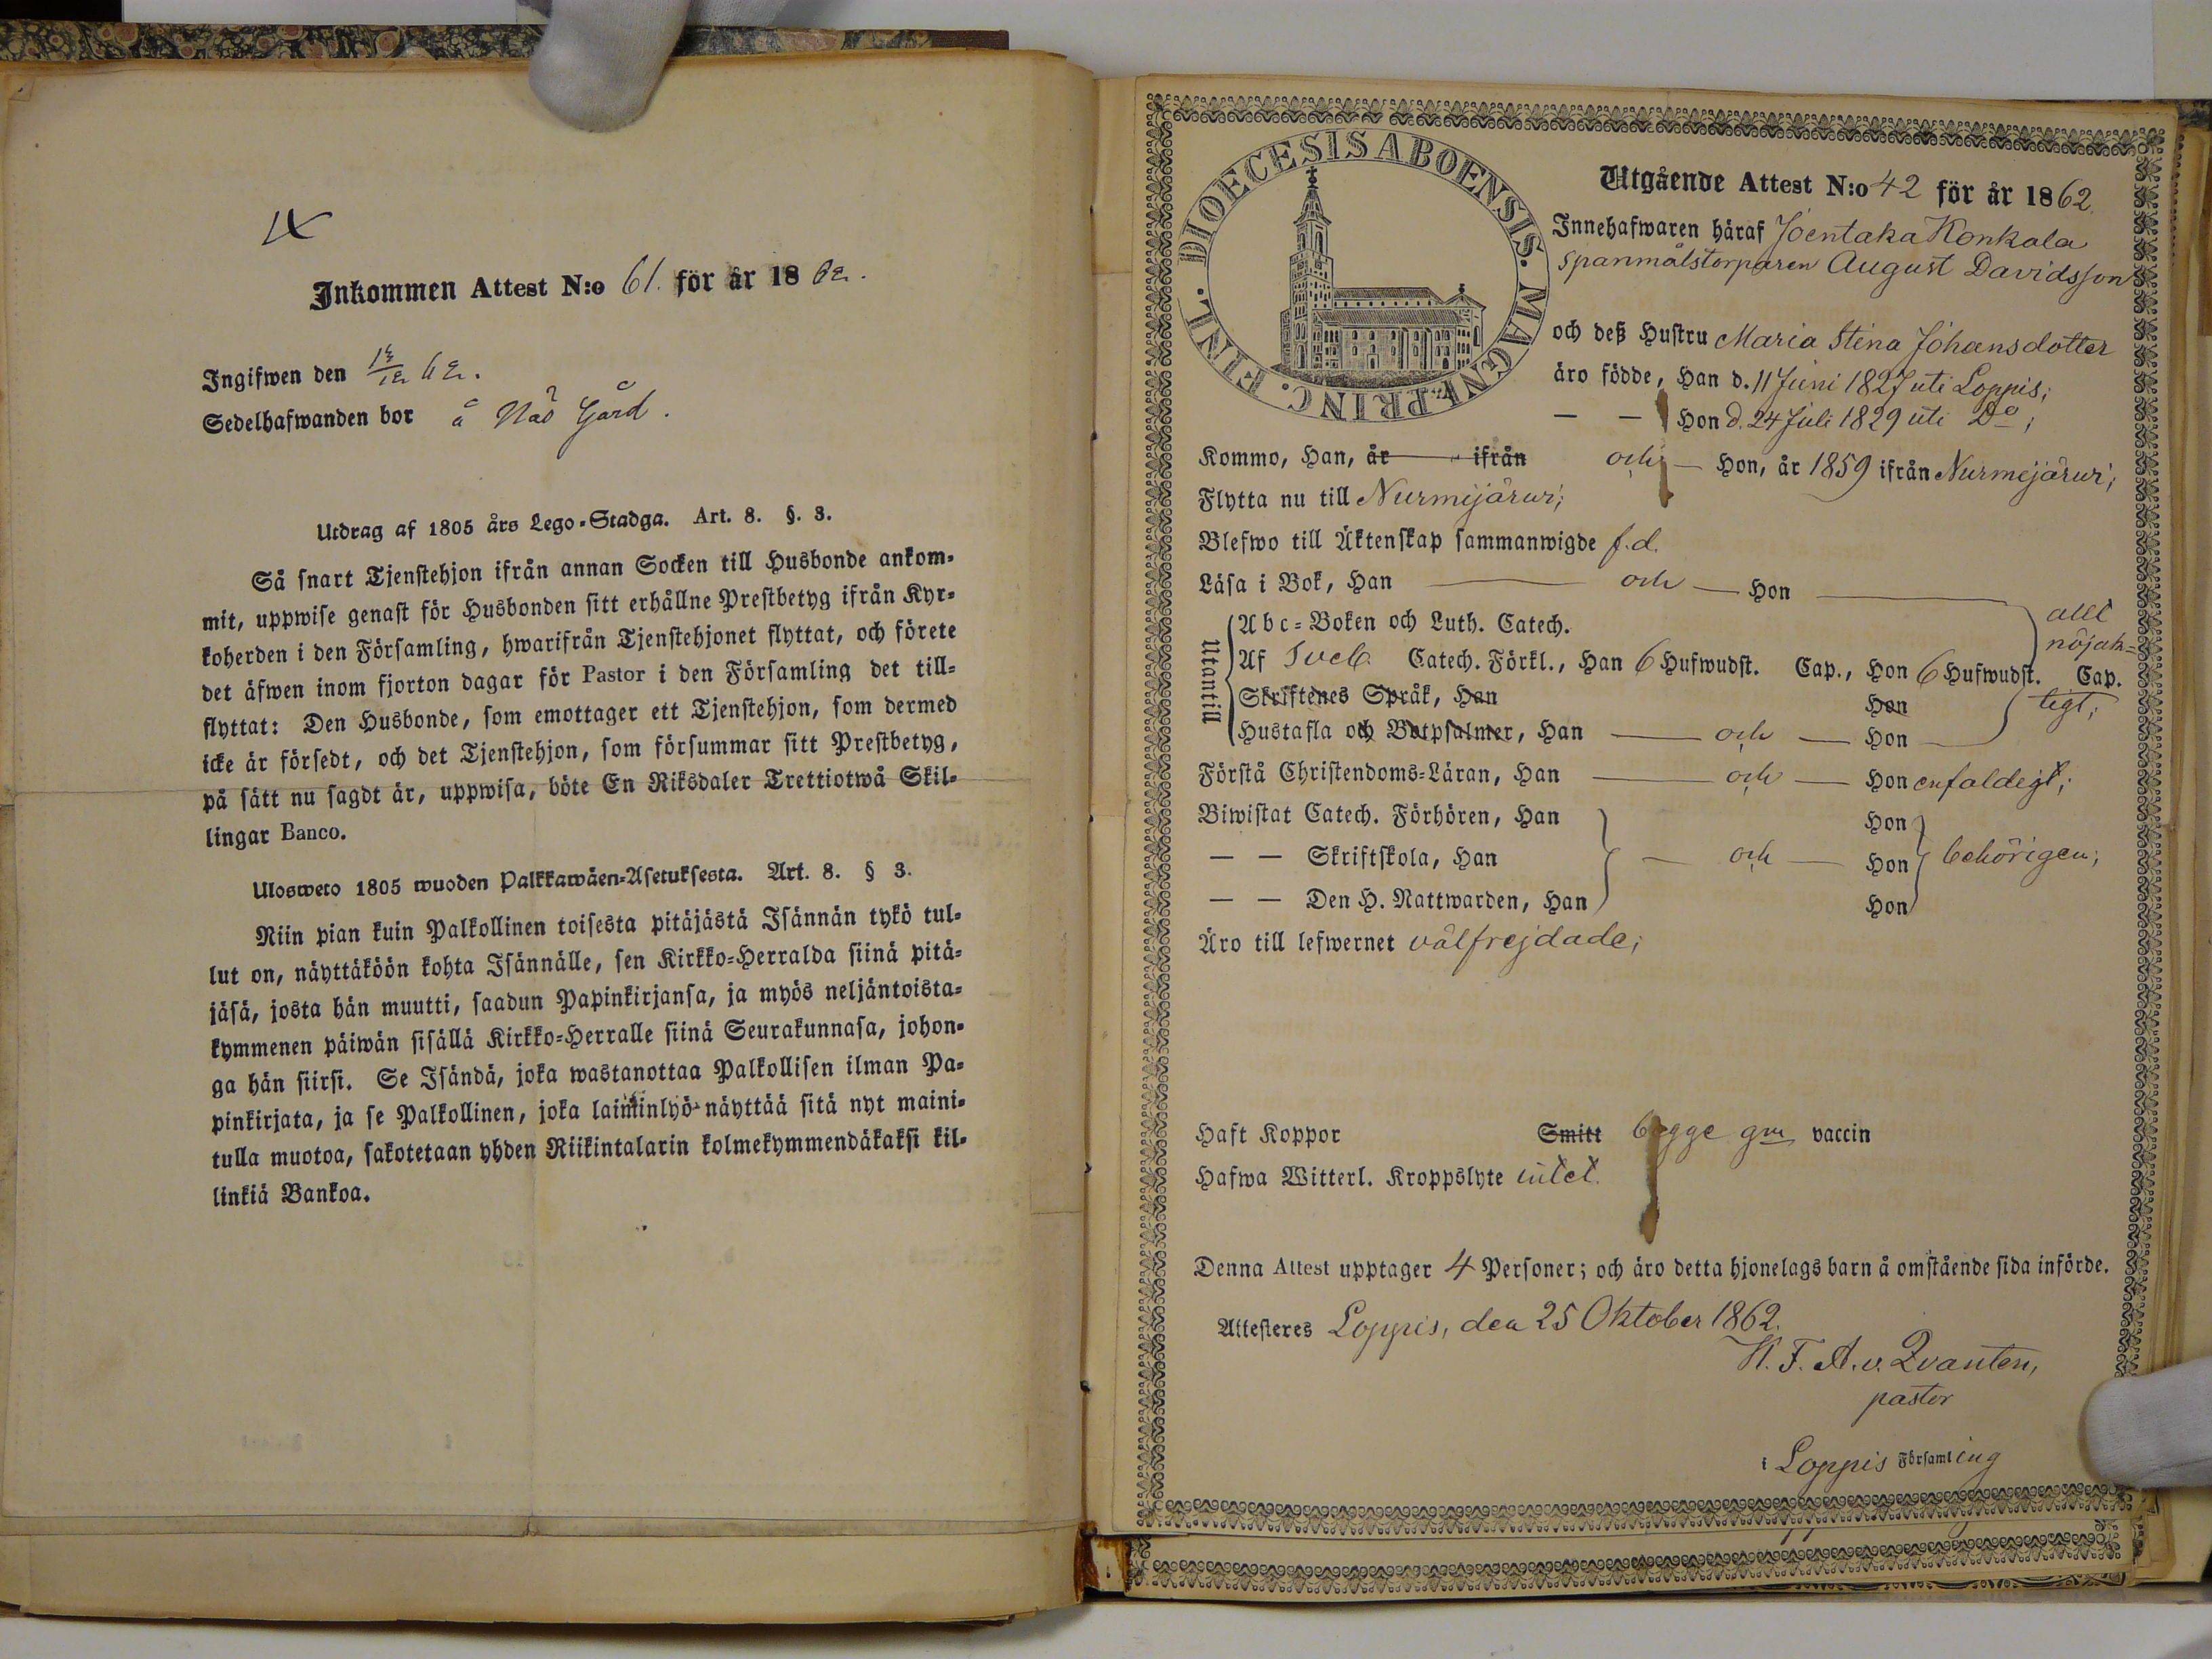 Inkommen Attest N:o 61. för år 1862.
Ingifwen den 14/12 62.
Sedelhafwanden bor å Näs Gård.
Utdrag af 1805 års Lego-Stadga. Art. 8. §. 3.
Så snart Tjenstehjon ifrån annan Socken till Husbonde ankom-
mit, uppwise genast för Husbonden sitt erhållne Prestbetyg ifrån Kyr-
koherden i den Församling, hwarifrån Tjenstehjonet flyttat, och förete
det äfwen inom fjorton dagar för Pastor i den Församling det till-
flyttat: Den Husbonde, som emottager ett Tjenstehjon, som dermed
icke är försedt, och det Tjenstehjon, som försummar sitt Prestbetyg,
på sätt nu sagdt är, uppwisa, böte En Riksdaler Trettiotwå Skil-
lingar Banco.
Ulosweto 1805 wuoden Palkkawäen-Asetuksesta. Art. 8. § 3.
Niin pian kuin Palkollinen toisesta pitäjästä Isännän tykö tul-
lut on, näyttäköön kohta Isännälle, sen Kirkko-Herralda siinä pitä-
jäsä, josta hän muutti, saadun Papinkirjansa, ja myös neljäntoista-
kymmenen päiwän sisällä Kirkko-Herralle siinä Seurakunnasa, johon-
ga hän siirsi. Se Isändä, joka wastanottaa Palkollisen ilman Pa-
pinkirjata, ja se Palkollinen, joka laiminlyö näyttää sitä nyt maini-
tulla muotoa, sakotetaan yhden Riikintalarin kolmekymmendäkaksi kil-
linkiä Bankoa.
DIOECESIS ABOENSIS. MAGNI PRINC. FINL.
Utgående Attest N:o 42 för år 1862.
Innehafwaren häraf Joentaka Konkala
spanmålstorparen August Davidsson
och deß Hustru Maria Stina Johansdotter
äro födde, Han d. 11 Juni 1827 uti Loppis;
— — Hon d. 24 Juli 1829 uti Do;
Kommo, Han, år ifrån och — Hon, år 1859 ifrån Nurmejärwi;
Flytta nu till Nurmijärwi;
Blefwo till Äktenskap sammanwigde f.d.
Läsa i Bok, Han — och — Hon — allt
Utantill
Abc-Boken och Luth. Catech. nöjak-
Af Sveb. Catech. Förkl., Han 6 Hufwudst. Cap., Hon 6 Hufwudst. Cap.
Skriftenes Språk, Han Hon tigt;
Hustafla och Botpsalmer, Han — och — Hon —
Förstå Christendoms-Läran, Han — och — Hon enfaldigt;
Biwistat Catech. Förhören, Han Hon
— — Skriftskola, Han — och — Hon behörigen;
— — Den H. Nattwarden, Han Hon
Äro till lefwernet välfrejdade;
Haft Koppor Smitt begge gm vaccin
Hafwa Witterl. Kroppslyte intet.
Denna Attest upptager 4 Personer; och äro detta hjonelags barn å omstående sida införde.
Attesteres Loppis, den 25 Oktober 1862.
K. F. A. v. Qvanten,
pastor
i Loppis Församling